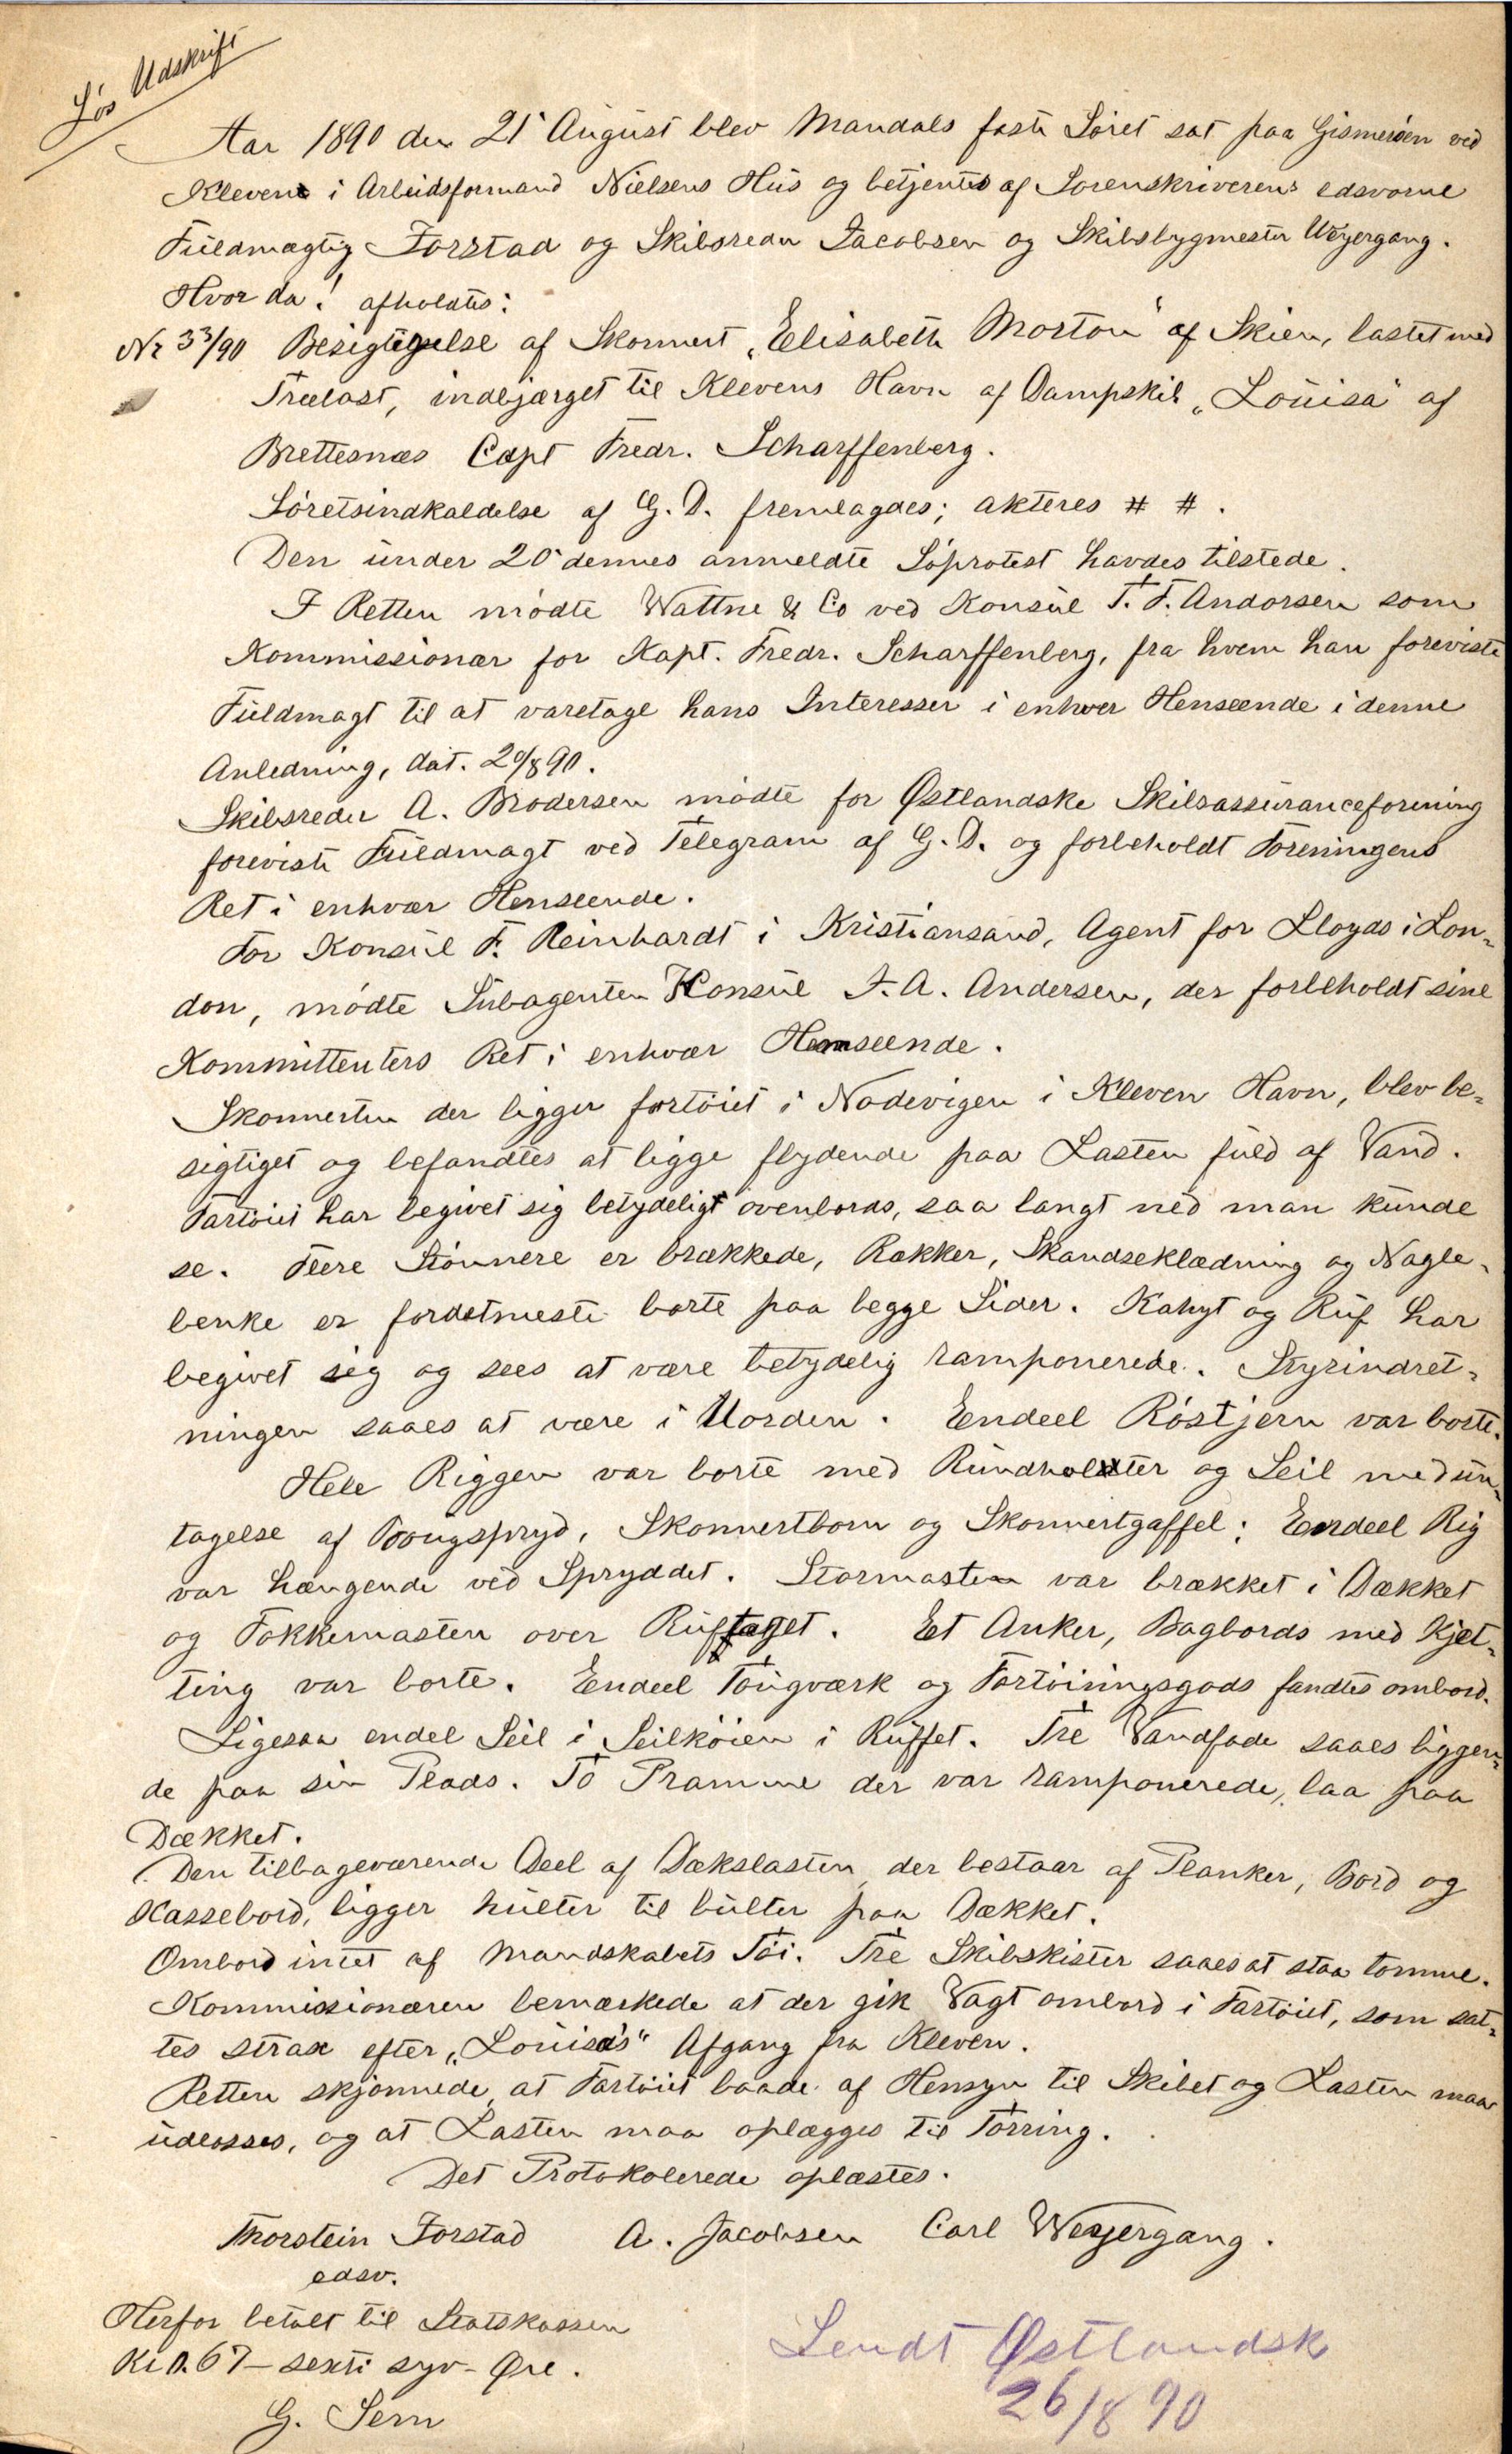 Løs Udskrift
Aar 1890 den 21 August blev Mandals faste Søret sat paa Gismerøen ved
Kleven i Arbeidsformand Nielsens Hus og betjentes af Sorenskriverens edsvorne
Fuldmægtig Forstad og Skibsreder Jacobsen og Skibsbygmester Weyergang.
Hvor da! afholdtes:
Nr 33/90 Besigtigelse af Skonnert „Elisabeth Morton" af Skien, lastet med
Trælast, indbjærget til Klevens Havn af Dampskib „Louisa" af
Brettesnæs Capt Fredr. Scharffenberg.
Søretsindkaldelse af G. D. fremlagdes; akteres # #.
Den under 20 dennes anmeldte Søprotest havdes tilstede.
I Retten mødte Wattne & Co ved Konsul T. F. Andorsen som
Kommissionær for Kapt. Fredr. Scharffenberg, fra hvem han foreviste
Fuldmagt til at varetage hans Interesser i enhver Henseende i denne
Anledning, dat. 20/8 90.
Skibsreder A. Brodersen mødte for Østlandske Skibsassuranceforening
foreviste Fuldmagt ved Telegram af G. D. og forbeholdt Foreningens
Ret i enhver Henseende.
For Konsul F. Reinhardt i Kristiansand, Agent for Lloyds i Lon-
don, mødte Subagenten Konsul F. A. Andersen, der forbeholdt sine
Kommittenters Ret i enhvær Henseende.
Skonnerten der ligger fortøiet i Nodevigen i Kleven Havn, blev be-
sigtiget og befandtes at ligge flydende paa Lasten fuld af Vand.
Fartøiet har begivet sig betydeligt ovenbords, saa langt ned man kunde
se. Flere Stønnere er brækkede, Rækker, Skandseklædning og Nagle-
benke er fordetmeste borte paa begge Sider. Kahyt og Ruf har
begivet sig og sees at være betydelig ramponerede. Styrindret-
ningen saaes at være i Uorden. Endeel Røstjern var borte.
Hele Riggen var borte med Rundholter og Seil med un-
tagelse af Bougspryd, Skonnertbom og Skonnertgaffel; Endeel Rig
var hængende ved Spryddet. Stormasten var brækket i Dækket
og Fokkemasten over Ruftaget. Et Anker, Bagbords med Kjet-
ting var borte. Endeel Tougværk og Fortøiningsgods fandtes ombord.
Ligesaa endel Seil i Seilkøien i Ruffet. Tre Vandfade saaes liggen-
de paa sin Plads. To Pramme der var ramponerede, laa paa
Dækket.
Den tilbageværende Deel af Dækslasten der bestaar af Planker, Bord og
Kassebord, ligger hulter til bulter paa Dækket.
Ombord intet af Mandskabets Tøi. Tre Skibskister saaes at staa tomme.
Kommissionæren bemærkede at der gik Vagt ombord i Fartøiet, som sat-
tes strax efter „Louisa's" Afgang fra Kleven.
Retten skjønnede, at Fartøiet baade af Hensyn til Skibet og Lasten maa
udlosses, og at Lasten maa oplægges til Tørring.
Det Protokolerede oplæstes.
Thorstein Forstad A. Jacobsen Carl Weyergang.
edsv.
Herfor betalt til Statskassen
Kr 0.67 – sexti syv – Øre.
G. Sem
Sendt Østlandske
26/8 90